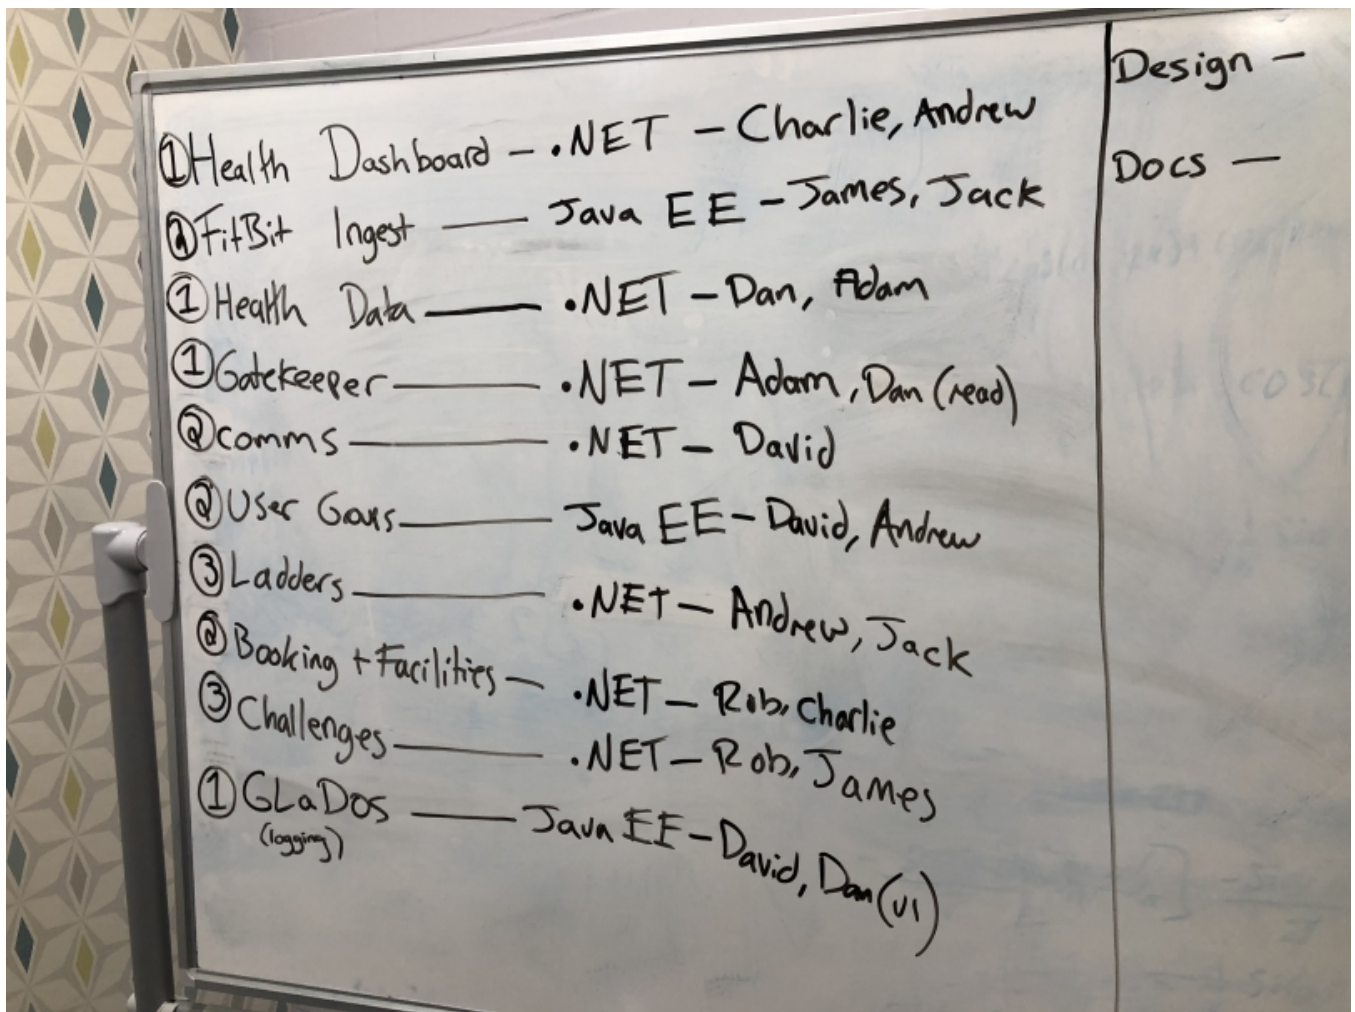 ① Health Dashboard – .NET – Charlie, Andrew
② FitBit Ingest — Java EE – James, Jack
① Health Data — .NET – Dan, Adam
① Gatekeeper — .NET – Adam, Dan (read)
② comms — .NET – David
② User Goals — Java EE – David, Andrew
③ Ladders — .NET – Andrew, Jack
② Booking + Facilities – .NET – Rob, Charlie
③ Challenges — .NET – Rob, James
① GLaDOS — Java EE – David, Dan (v1)
(logging)
Design –
Docs —